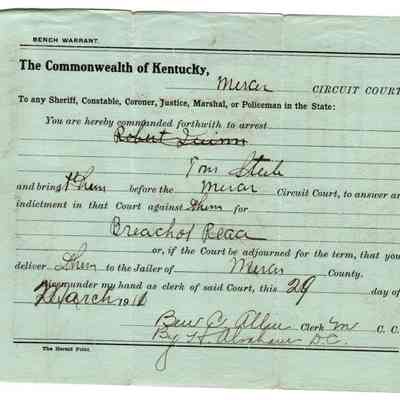 BENCH WARRANT.
The Commonwealth of Kentucky,
Mercer CIRCUIT COURT
To any Sheriff, Constable, Coroner, Justice, Marshal, or Policeman in the State:
You are hereby commanded forthwith to arrest
Robert Quinn
Tom Steele
and bring them before the Mercer Circuit Court, to answer an
indictment in that Court against them for
Breach of Peace
or, if the Court be adjourned for the term, that you
deliver them to the Jailer of Mercer County.
Given under my hand as clerk of said Court, this 29 day of
March 191
Ben C. Allen Clerk M C. C.
By H. D.C.
The Hermit Print.